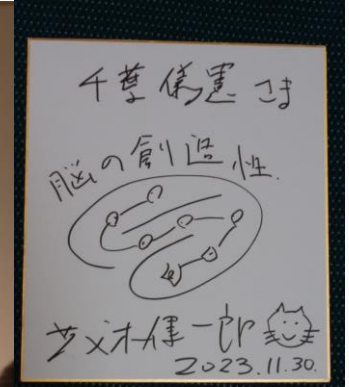 千葉 憲 さま
脳の創造性.
茂木健一郎
2023.11.30.